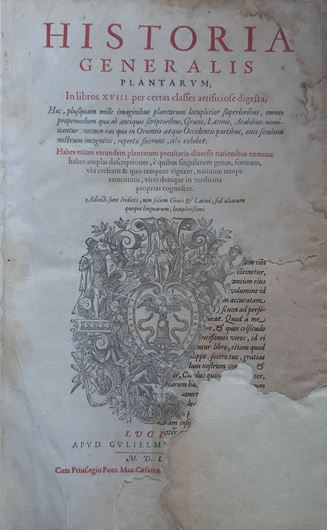 HISTORIA
GENERALIS
PLANTARVM,
In libros XVIII. per certas classes artificiose digesta,
Hæc, plusquam mille imaginibus plantarum locupletior superioribus, omnes
propemodum quæ ab antiquis scriptoribus, Græcis, Latinis, Arabibus, nomi-
nantur: necnon eas quæ in Orientis atque Occidentis partibus, ante seculum
nostrum incognitis, repertæ fuerunt, tibi exhibet.
Habes etiam earundem plantarum peculiaria diuersis nationibus nomina:
habes amplas descriptiones, è quibus singularum genus, formam,
vbi crescant & quo tempore vigeant, natiuum tempe-
ramentum, vires denique in medicina
proprias cognosces.
Adiecti sunt Indices, non solum Græci & Latini, sed aliarum
quoque linguarum, locupletissimi.
tinetur,
antum eius
volumine id
m accuratam
) si non ad perfe-
Quod à me
, & quæ celsitudo
uir libro, etiam quod
ilippo, socero tuo, gratias
dum nostrorum &
LVGD
APVD GVLIELMV
M. D. L
Cum Priuilegio Pont. Max. Cæsareæ